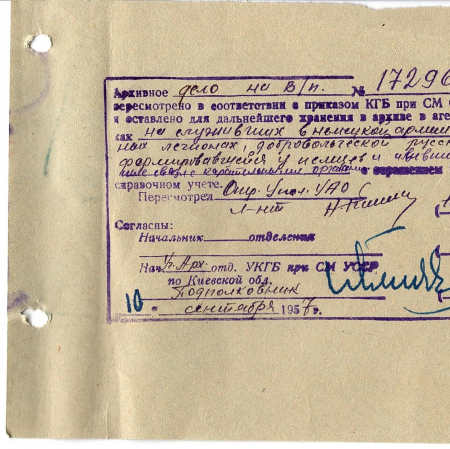 Архивное дело на В/п. № 17296
пересмотрено в соответствии с приказом КГБ при СМ
и оставлено для дальнейшего хранения в архиве в аге
ках на служивших в немецкой армии
ных легионах, добровольческой русс
формировавшейся у немцев и
карательных органа с отражением
справочном учете. Опер. Упол. УАО
Пересмотрел л-нт
Согласны:
Начальник отделения
Нач. Арх. отд. УКГБ при СМ УССР
по Киевской обл.
Подполковник
10 " сентября 1957 г.